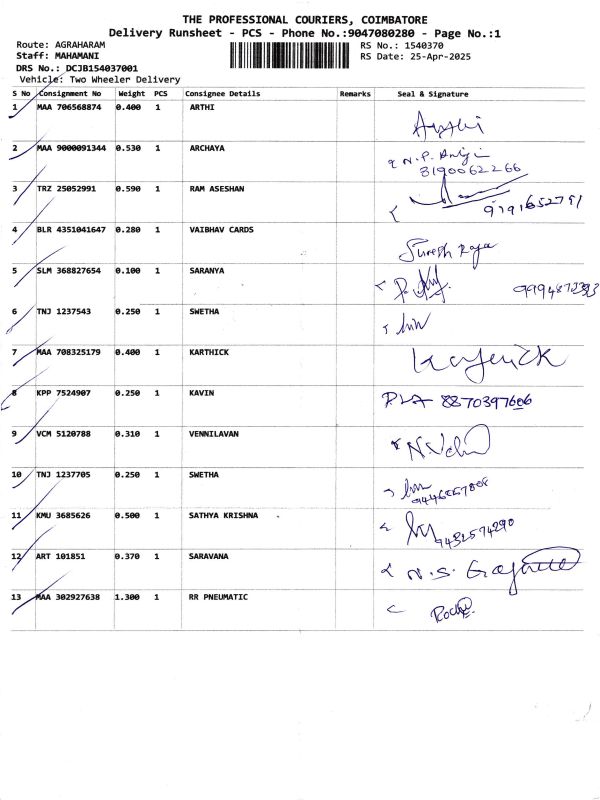 THE PROFESSIONAL COURIERS, COIMBATORE
Delivery Runsheet - PCS - Phone No.:9047080280 - Page No.:1
Route: AGRAHARAM RS No.: 1540370
Staff: MAHAMANI RS Date: 25-Apr-2025
DRS No.: DCJB154037001
Vehicle: Two Wheeler Delivery
S No Consignment No Weight PCS Consignee Details Remarks Seal & Signature
1 MAA 706568874 0.400 1 ARTHI
2 MAA 9000091344 0.530 1 ARCHAYA
3190062266
3 TRZ 25052991 0.590 1 RAM ASESHAN
4 BLR 4351041647 0.280 1 VAIBHAV CARDS
Suresh Raja
5 SLM 368827654 0.100 1 SARANYA
6 TNJ 1237543 0.250 1 SWETHA
7 MAA 708325179 0.400 1 KARTHICK
8 KPP 7524907 0.250 1 KAVIN
8870397606
9 VCM 5120788 0.310 1 VENNILAVAN
10 TNJ 1237705 0.250 1 SWETHA
11 KMU 3685626 0.500 1 SATHYA KRISHNA
12 ART 101851 0.370 1 SARAVANA
N.S.
13 MAA 302927638 1.300 1 RR PNEUMATIC